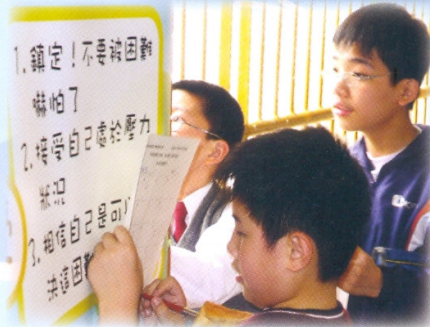 1. 鎮定！不要被困難
嚇怕了
2. 接受自己處於壓力
狀況
3. 相信自己是可
決這困